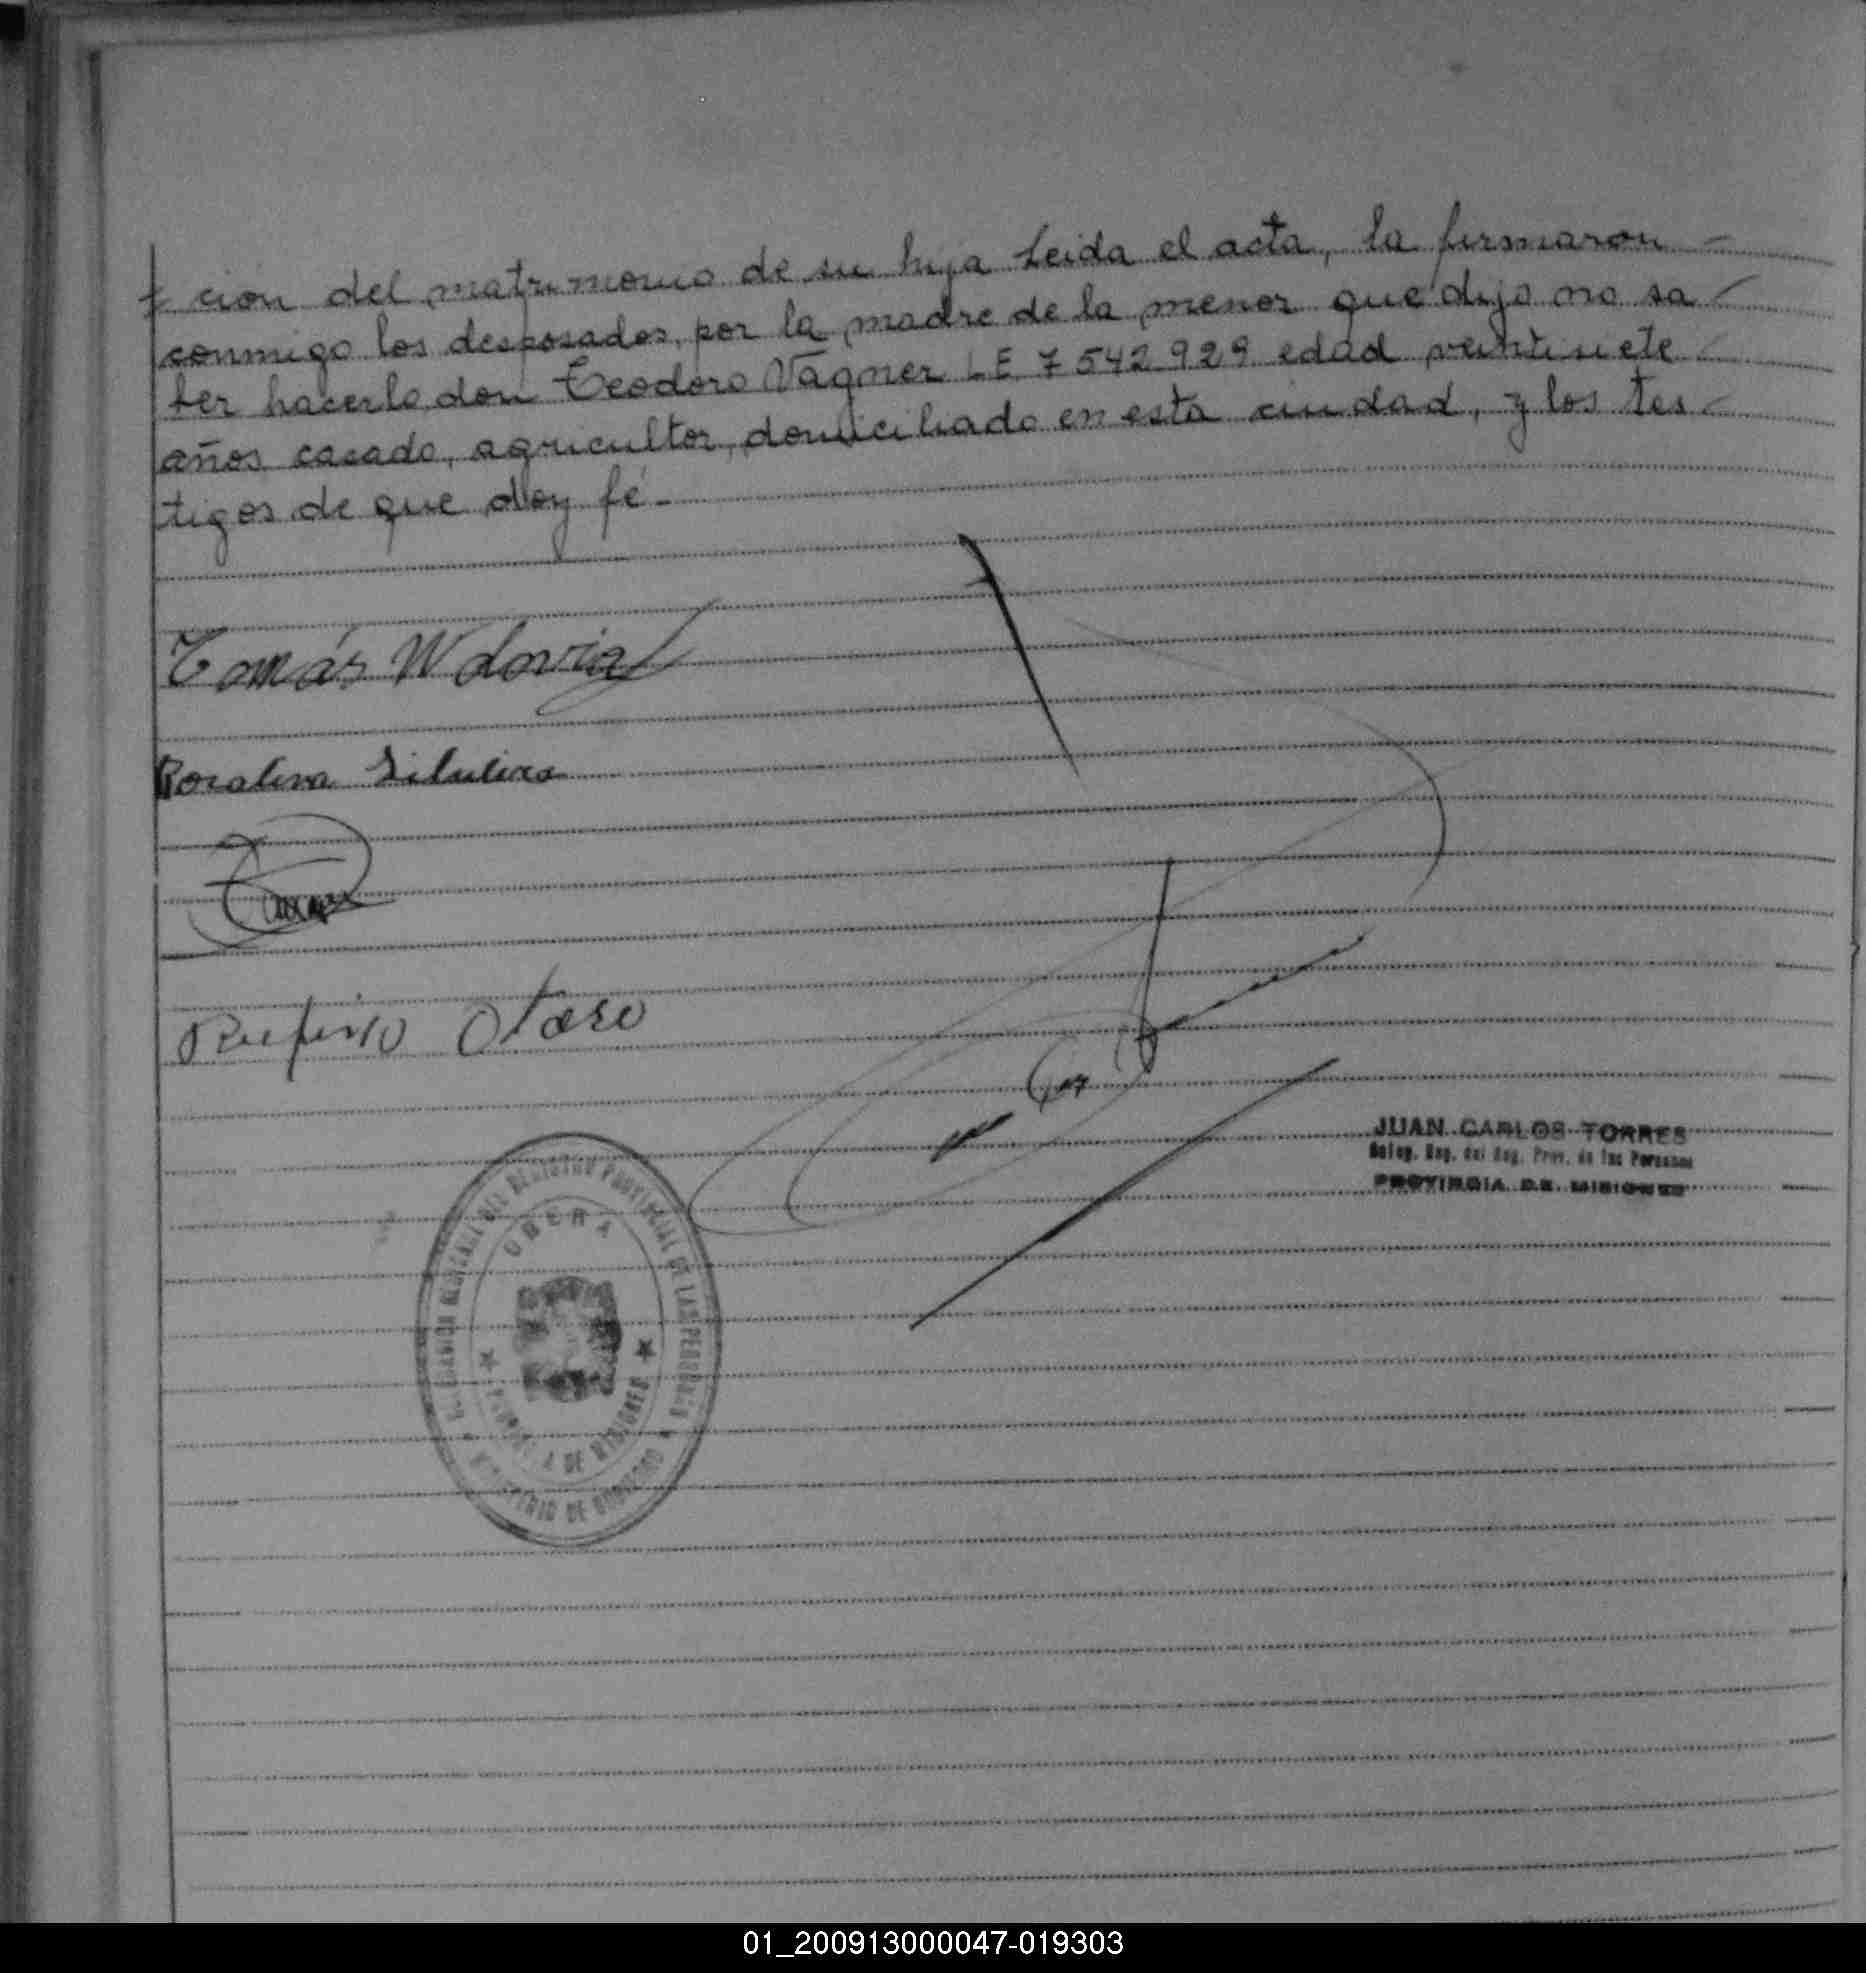 ción del matrimonio de su hija Leida el acta, la firmaron -
conmigo los desposados, por la madre de la menor que dijo no sa
ber hacerlo don Teodoro Vagner LE 7 542 929 edad veintisiete
años casado, agricultor, domiciliado en esta ciudad, y los tes
tigos de que doy fé -
Tomás
Rosalina
Otaso
JUAN CARLOS TORRES
Deleg. Reg. del Reg. Prov. de las Personas
PROVINCIA DE MISIONES
DEL REGISTRO PROVINCIAL DE LAS PERSONAS
OBERA
PROVINCIA DE MISIONES
MINISTERIO DE GOBIERNO
01_200913000047-019303